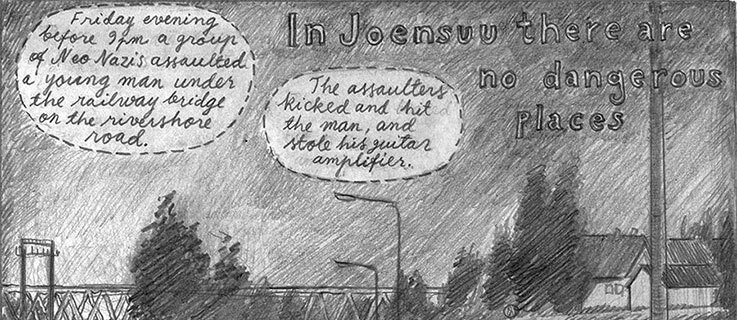 Friday evening
before 9pm a group
of Neo Nazis assaulted
a young man under
the railway bridge
on the rivershore
road.
The assaulters
kicked and hit
the man, and
stole his guitar
amplifier.
In Joensuu there are
no dangerous
places